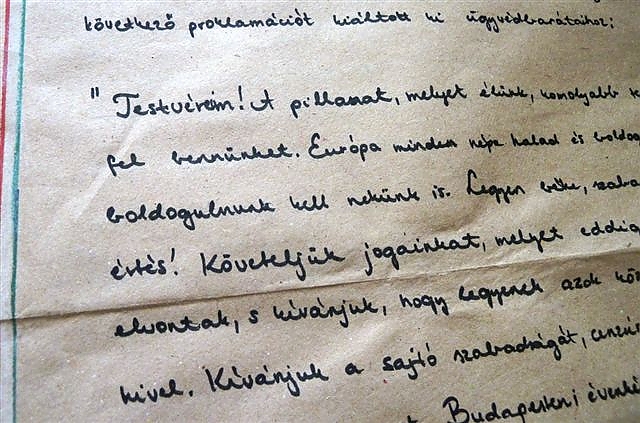 következő proklamációt kiáltott ki ügyvédbarátaihoz:
" Testvéreim! A pillanat, melyet élünk, komolyabb
fel bennünket. Európa minden népe halad és boldog
boldogulnunk kell nekünk is. Legyen béke, szaba
értés! Követeljük jogainkat, melyet eddig
elvontak, s kívánjuk, hogy legyenek azok köz
kivel. Kívánjuk a sajtó szabadságát, cenzúr
Budapesten; évenké